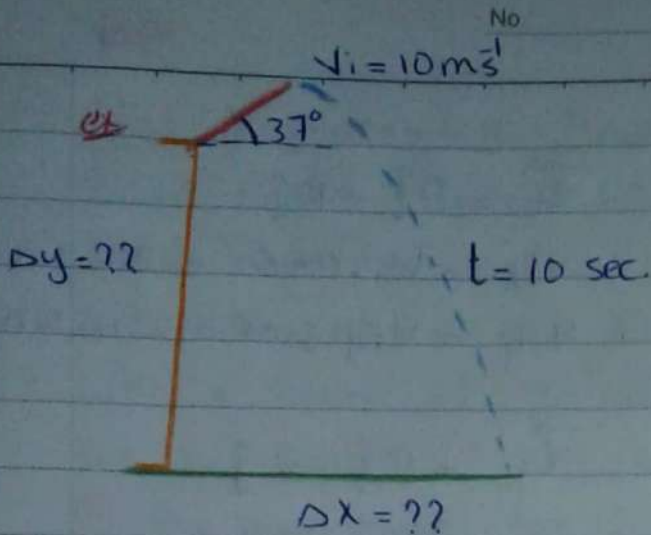 No
Vi = 10 ms⁻¹
ex
37°
Δy = ??
t = 10 sec.
Δx = ??